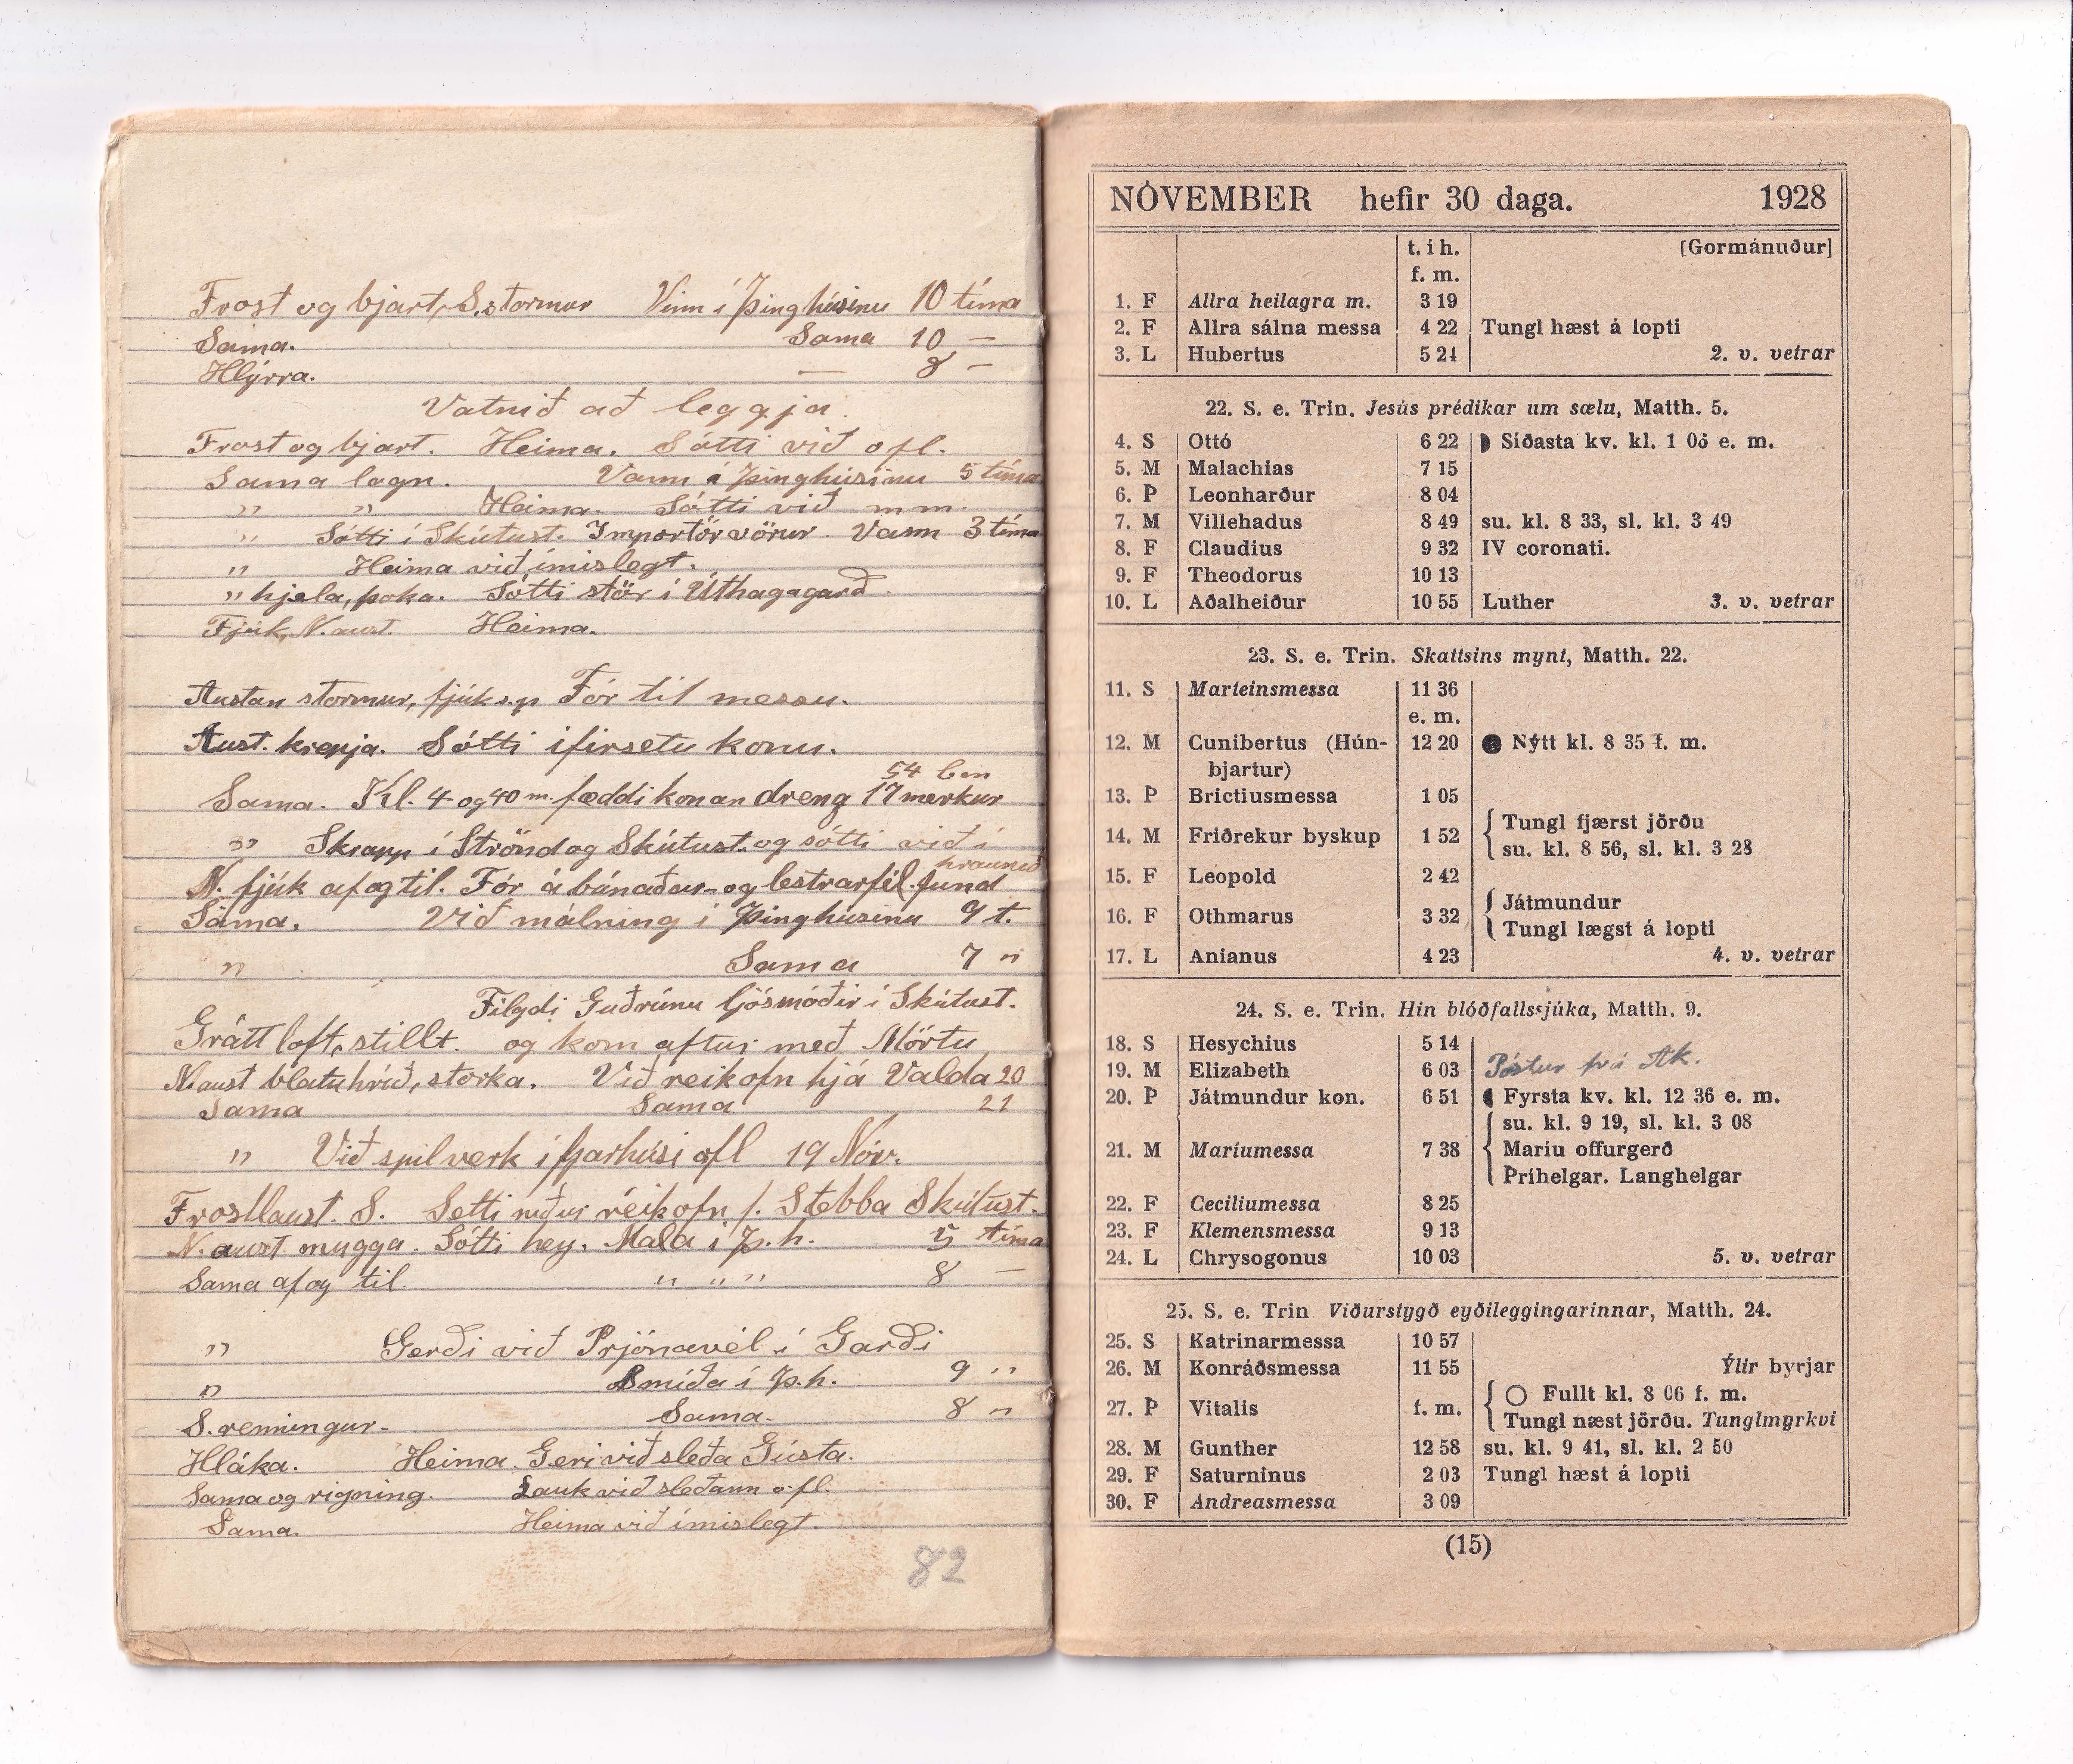 Frost og bjart, S. stormur Vinn í Þinghúsinu 10 tíma
Sama. Sama 10 —
Hlýrra. — 8 —
Vatnið að leggja.
Frost og bjart. Heima. Sótti við ofl.
Sama logn. Vann í Þinghúsinu 5 tíma
" " Heima. Sótti við m.m.
" Sótti í Skútust. Importör vörur. Vann 3 tíma
" Heima við ímislegt.
" hjela, þoka. Sótti stör í Úthagagarð
Fjúk, N. aust. Heima.
Austan stormur, fjúk Fór til messu.
Aust. krepja. Sótti ifirsetu konu.
54 cm
Sama. Kl. 4 og 40 m. fæddi konan dreng 17 merkur
" Skrapp í Strönd og Skútust. og sótti við í
hraunið
N. fjúk af og til. Fór á búnaðar- og lestrarfél. fund
Sama. Við málning í Þinghúsinu 9 t.
" Sama 7 "
Filgdi Guðrúnu ljósmóðir í Skútust.
Grátt loft, stillt. og kom aftur með Mörtu
N. aust blotuhríð, storka. Við reikofn hjá Valda 20
Sama Sama 21
" Við spilverk í fjarhúsi ofl 19 Nóv.
Frostlaust. S. Setti niður reikofn f. Stebba Skútust.
N. aust mugga. Sótti hey. Mála í Þ.h. 5 tíma
Sama af og til. " " " 8 —
" Gerði við Prjónavél í Garði
" Smíða í Þ.h. 9 "
S. renningur. Sama. 8 "
Hláka. Heima. Geri við sleða Gústa.
Sama og rigning. Lauk við sleðann o.fl.
Sama. Heima við ímislegt.
82
NÓVEMBER hefir 30 daga. 1928
t. í h. [Gormánuður]
f. m.
1. F Allra heilagra m. 3 19
2. F Allra sálna messa 4 22 Tungl hæst á lopti
3. L Hubertus 5 21 2. v. vetrar
22. S. e. Trin. Jesús prédikar um sælu, Matth. 5.
4. S Ottó 6 22 Síðasta kv. kl. 1 06 e. m.
5. M Malachias 7 15
6. Þ Leonharður 8 04
7. M Villehadus 8 49 su. kl. 8 33, sl. kl. 3 49
8. F Claudius 9 32 IV coronati.
9. F Theodorus 10 13
10. L Aðalheiður 10 55 Luther 3. v. vetrar
23. S. e. Trin. Skattsins mynt, Matth. 22.
11. S Marteinsmessa 11 36
e. m.
12. M Cunibertus (Hún- 12 20 Nýtt kl. 8 35 f. m.
bjartur)
13. Þ Brictiusmessa 1 05
14. M Friðrekur byskup 1 52 Tungl fjærst jörðu
su. kl. 8 56, sl. kl. 3 28
15. F Leopold 2 42
16. F Othmarus 3 32 Játmundur
Tungl lægst á lopti
17. L Anianus 4 23 4. v. vetrar
24. S. e. Trin. Hin blóðfallssjúka, Matth. 9.
18. S Hesychius 5 14
19. M Elizabeth 6 03 Póstur frá Ak.
20. Þ Játmundur kon. 6 51 Fyrsta kv. kl. 12 36 e. m.
su. kl. 9 19, sl. kl. 3 08
21. M Maríumessa 7 38 Maríu offurgerð
Þríhelgar. Langhelgar
22. F Ceciliumessa 8 25
23. F Klemensmessa 9 13
24. L Chrysogonus 10 03 5. v. vetrar
25. S. e. Trin Viðurstygð eyðileggingarinnar, Matth. 24.
25. S Katrínarmessa 10 57
26. M Konráðsmessa 11 55 Ýlir byrjar
27. Þ Vitalis f. m. Fullt kl. 8 06 f. m.
Tungl næst jörðu. Tunglmyrkvi
28. M Gunther 12 58 su. kl. 9 41, sl. kl. 2 50
29. F Saturninus 2 03 Tungl hæst á lopti
30. F Andreasmessa 3 09
(15)